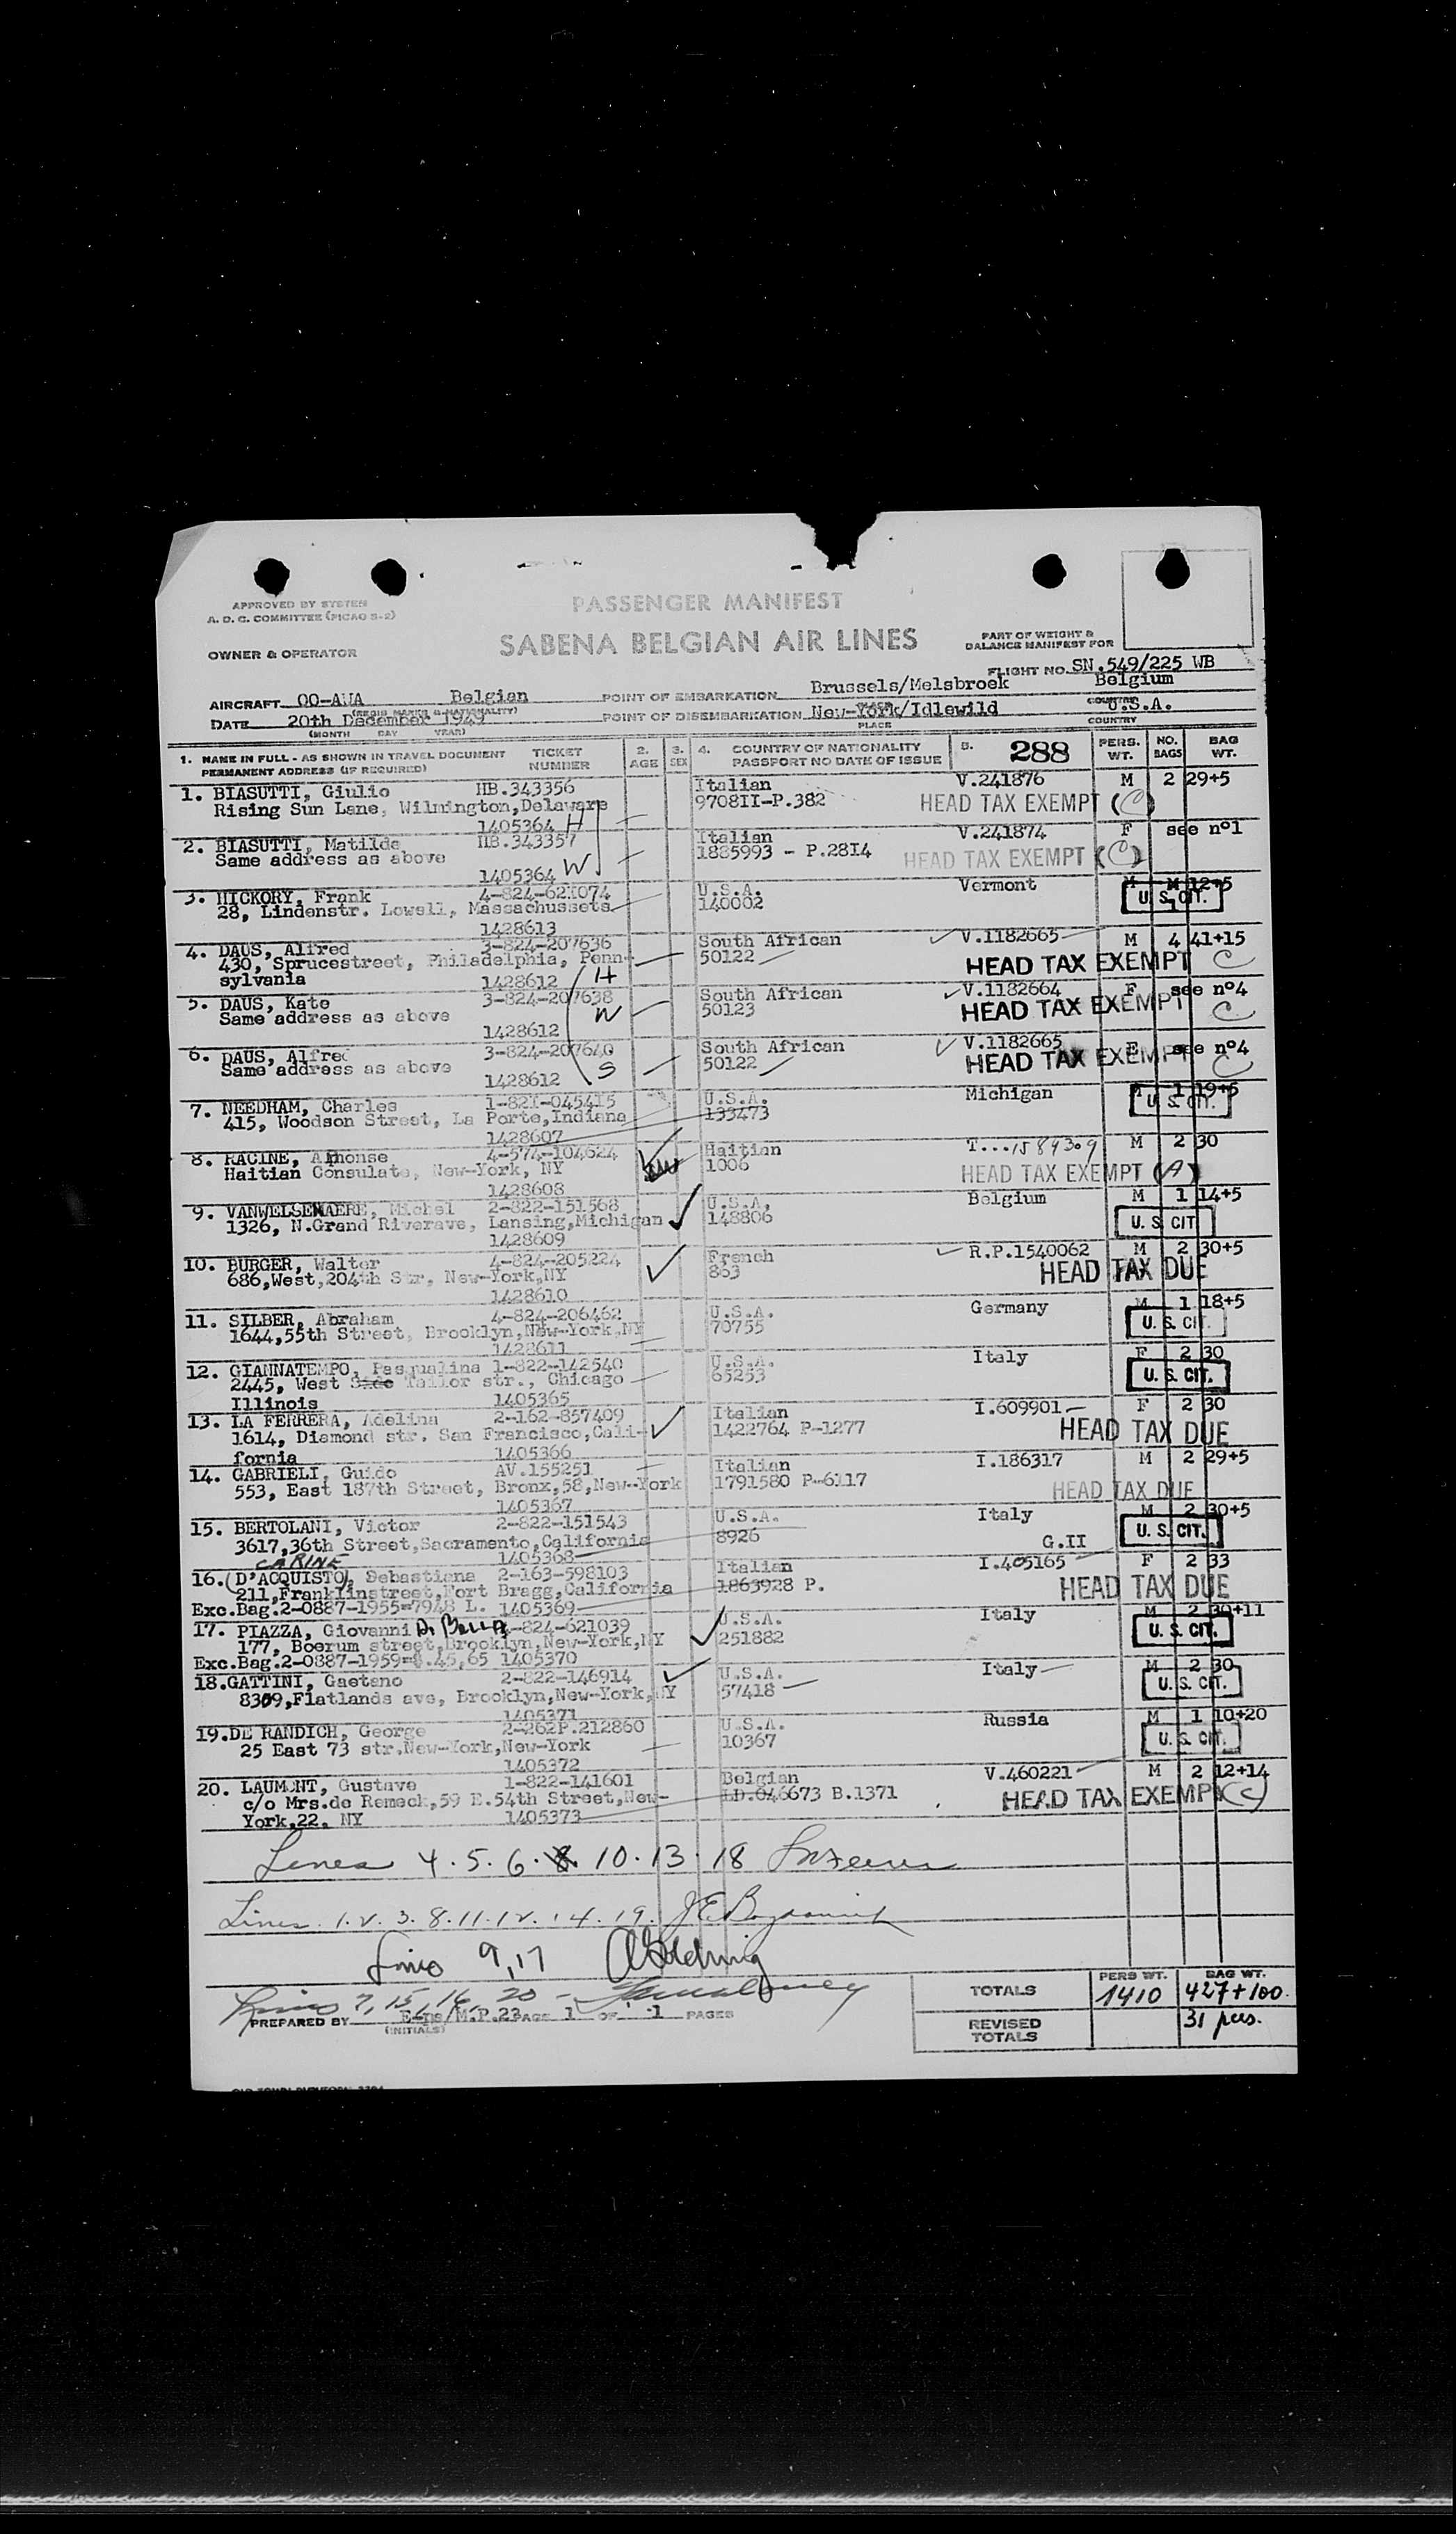 APPROVED BY SYSTEM
A. D. C. COMMITTEE (PICAO S-2)
PASSENGER MANIFEST
SABENA BELGIAN AIR LINES
OWNER & OPERATOR
PART OF WEIGHT &
BALANCE MANIFEST FOR
FLIGHT NO. SN.549/225 WB
AIRCRAFT OO-AWA Belgian POINT OF EMBARKATION Brussels/Melsbroek Belgium
(REGIS MARKS & NATIONALITY) PLACE COUNTRY
DATE 20th December 1949 POINT OF DISEMBARKATION New-York/Idlewild U.S.A.
(MONTH DAY YEAR) PLACE COUNTRY
1. NAME IN FULL - AS SHOWN IN TRAVEL DOCUMENT TICKET 2. 3. 4. COUNTRY OF NATIONALITY 5. 288 PERS. NO. BAG
PERMANENT ADDRESS (IF REQUIRED) NUMBER AGE SEX PASSPORT NO DATE OF ISSUE WT. BAGS WT.
1. BIASUTTI, Giulio HB.343356 Italian V.241876 M 2 29+5
Rising Sun Lane, Wilmington,Delaware 9708II-P.382 HEAD TAX EXEMPT (C)
1405364 H
2. BIASUTTI, Matilde HB.343357 Italian V.241874 F see n°1
Same address as above 1885993 - P.28I4 HEAD TAX EXEMPT (C)
1405364 W
3. HICKORY, Frank 4-824-621074 U.S.A. Vermont M 12+5
28, Lindenstr. Lowell, Massachussets 140002 U. S. CIT.
1428613
4. DAUS, Alfred 3-824-207636 South African V.1182665 M 4 41+15
430, Sprucestreet, Philadelphia, Penn- 50122 HEAD TAX EXEMPT C
sylvania 1428612 H
5. DAUS, Kate 3-824-207638 South African V.1182664 F see n°4
Same address as above W 50123 HEAD TAX EXEMPT C
1428612
6. DAUS, Alfred 3-824-207640 South African V.1182665 see n°4
Same address as above S 50122 HEAD TAX EXEMPT C
1428612
7. NEEDHAM, Charles 1-821-045415 U.S.A. Michigan 1 19+5
415, Woodson Street, La Porte,Indiana 133473 U. S. CIT.
1428607
8. RACINE, Alphonse 4-574-104624 Haitian T...1589309 M 2 30
Haitian Consulate, New-York, NY 1006 HEAD TAX EXEMPT (A)
1428608
9. VANWELSENAERE, Michel 2-822-151568 U.S.A. Belgium M 1 14+5
1326, N.Grand Riverave, Lansing,Michigan 148806 U. S. CIT
1428609
10. BURGER, Walter 4-824-205224 French R.P.1540062 M 2 30+5
686,West,204th Str, New-York,NY 863 HEAD TAX DUE
1428610
11. SILBER, Abraham 4-824-206462 U.S.A. Germany M 1 18+5
1644,55th Street, Brooklyn,New-York,NY 70755 U. S. CIT.
1428611
12. GIANNATEMPO, Pasqualina 1-822-142540 U.S.A. Italy F 2 30
2445, West Tailor str., Chicago 65253 U. S. CIT.
Illinois 1405365
13. LA FERRERA, Adelina 2-162-857409 Italian I.609901 F 2 30
1614, Diamond str. San Francisco,Cali- 1422764 P-1277 HEAD TAX DUE
fornia 1405366
14. GABRIELI, Guido AV.155251 Italian I.186317 M 2 29+5
553, East 187th Street, Bronx,58,New-York 1791580 P-6117 HEAD TAX DUE
1405367
15. BERTOLANI, Victor 2-822-151543 U.S.A. Italy M 2 30+5
3617,36th Street,Sacramento,California 8926 G.II U. S. CIT.
CARINE 1405368
16. (D'ACQUISTO), Sebastiana 2-163-598103 Italian I.405165 F 2 33
211,Franklinstreet,Fort Bragg,California 1863928 P. HEAD TAX DUE
Exc.Bag.2-0887-1955=7948 L. 1405369
17. PIAZZA, Giovanni Di BELLA 4-824-621039 U.S.A. Italy M 2 30+11
177, Boerum street,Brooklyn,New-York,NY 251882 U. S. CIT.
Exc.Bag.2-0887-1959=$.45,65 1405370
18. GATTINI, Gaetano 2-822-146914 U.S.A. Italy M 2 30
8309,Flatlands ave, Brooklyn,New-York,NY 57418 U. S. CIT.
1405371
19. DE RANDICH, George 2-262P.212860 U.S.A. Russia M 1 10+20
25 East 73 str.New-York,New-York 10367 U. S. CIT.
1405372
20. LAUMONT, Gustave 1-822-141601 Belgian V.460221 M 2 12+14
c/o Mrs.de Remeck,59 E.54th Street,New- LD.046673 B.1371 HEAD TAX EXEMPT (C)
York,22. NY 1405373
Lines 4.5.6.8. 10.13.18
Lines 1.2.3.8.11.12.14.19.
Lines 9,17
Lines 7,15,16,20 -
PREPARED BY M.P.23 PAGE 1 OF 1 PAGES
(INITIALS)
PERS WT. BAG WT.
TOTALS 1410 427+100.
REVISED
TOTALS 31 pces.